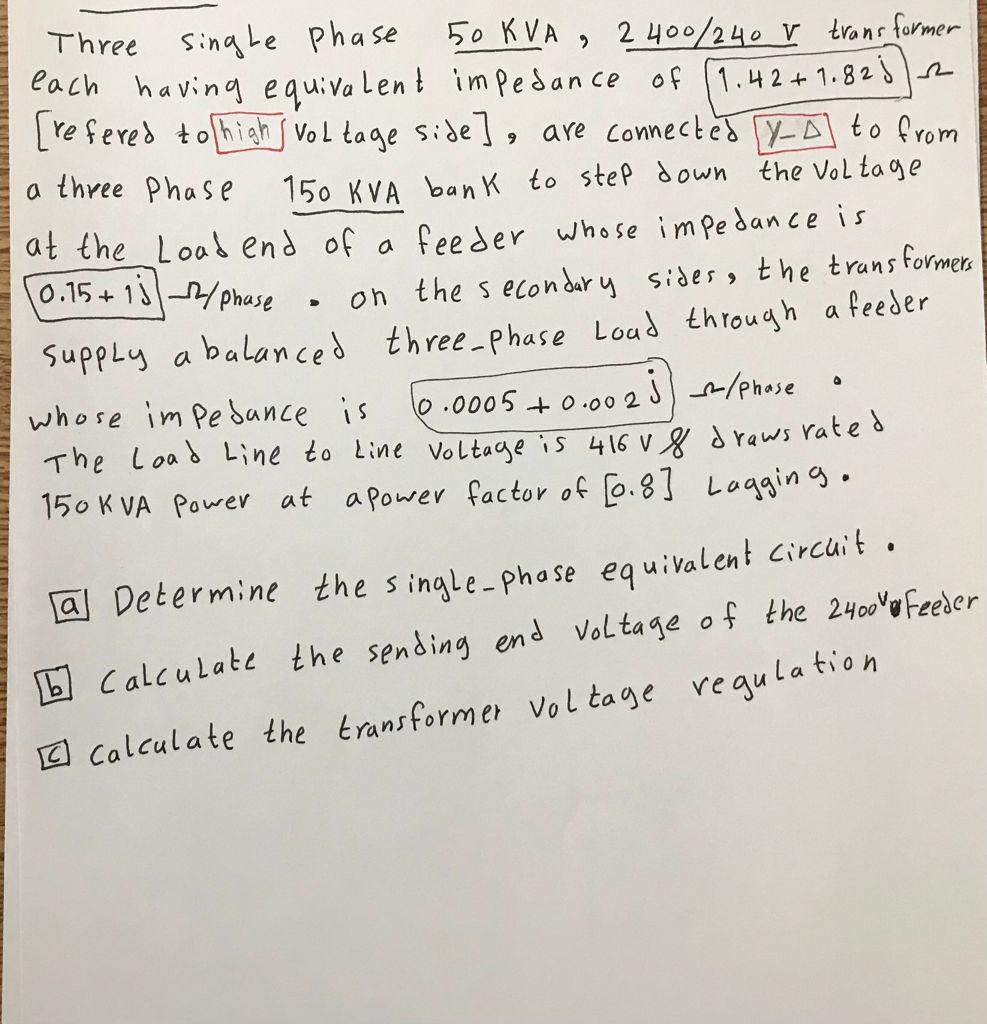 Three single Phase 50 KVA , 2400/240 V transformer
each having equivalent impedance of 1.42 + 1.82j Ω
[refered to high voltage side] , are connected Y-Δ to from
a three Phase 150 KVA bank to step down the voltage
at the Load end of a feeder whose impedance is
0.15 + 1j Ω/phase . on the secondary sides , the transformers
supply a balanced three-phase Load through a feeder
whose impedance is 0.0005 + 0.002j Ω/phase .
The Load Line to Line Voltage is 416 V & draws rated
150 KVA Power at a power factor of [0.8] Lagging .
a Determine the single-phase equivalent circuit .
b Calculate the sending end Voltage of the 2400V Feeder
c Calculate the transformer Voltage regulation